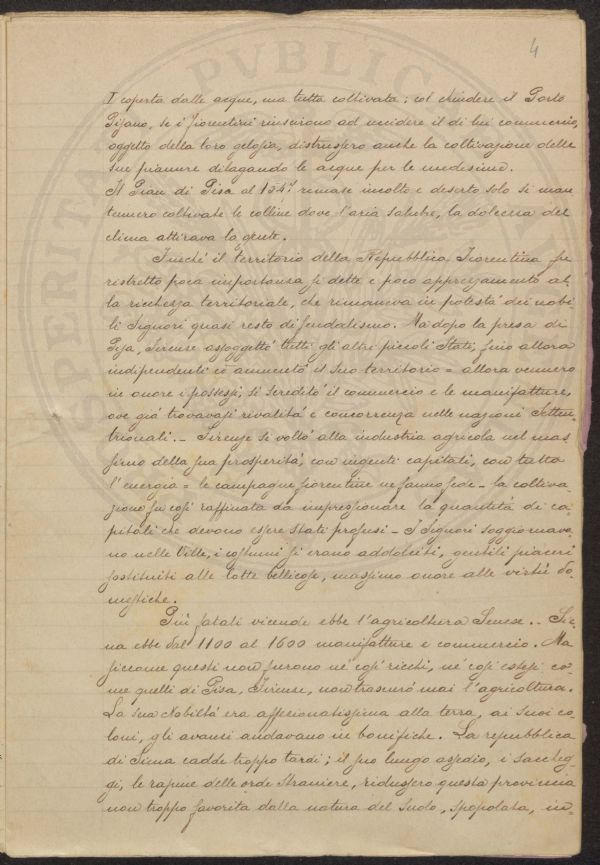 4
I coperta dalle acque, ma tutta coltivata; col chiudere il Porto
Pisano, se i fiorentini riuscirono ad uccidere il di lui commercio,
oggetto della loro gelosia, distrussero anche la coltivazione delle
sue pianure dilagando le acque per le medesime.
Il Pian di Pisa al rimase incolto e deserto solo si man
tennero coltivate le colline dove l'aria salubre, la dolcezza del
clima attirava la gente.
Finchè il territorio della Repubblica Fiorentina fu
ristretto poca importanza si dette e poco apprezzamento al-
la ricchezza territoriale, che rimaneva in potestà dei nobi
li Signori quasi resto di feudalismo. Ma dopo la presa di
Pisa, Firenze assoggettò tutti gli altri piccoli Stati, fino allora
indipendenti ed aumentò il suo territorio = allora vennero
in onore i possessi, si screditò il commercio e le manifatture,
ove già trovavasi rivalità e concorrenza nelle nazioni Setten-
trionali. - Firenze si voltò alla industria agricola nel mas
simo della sua prosperità, con ingenti capitali, con tutta
l'energia = le campagne fiorentine ne fanno fede - la coltiva-
zione fu così raffinata da impressionare la quantità di ca-
pitali che devono essere stati profusi - I Signori soggiornava-
no nelle Ville, i costumi si erano addolciti, gentili piaceri
sostituiti alle lotte bellicose, massimo onore alle virtù do-
mestiche.
Più fatali vicende ebbe l'agricoltura Senese. - Sie-
na ebbe dal 1100 al 1600 manifatture e commercio. Ma
siccome questi non furono nè così ricchi, nè così estesi co-
me quelli di Pisa, Firenze, non trascurò mai l'agricoltura.
La sua Nobiltà era affezionatissima alla terra, ai suoi co-
loni, gli avanzi andavano in bonifiche. La repubblica
di Siena cadde troppo tardi; il suo lungo assedio, i saccheg-
gi, le rapine delle orde straniere, ridussero questa provincia
non troppo favorita dalla natura del Suolo, spopolata, in-